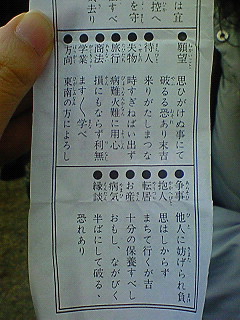 は宜
控へ
を守
すべ
去り
●願望 思ひがけぬ事にて
破るる恐あり末吉
●待人 来りがたし
●失物 時すぎねばい出ず
●旅行 病難火難に用心
●商法 損にもならず利無
●学業 ますく学べ
●方向 東南の方によろし
●争事 他人に妨げられ負
●抱人 思はしからず
●転居 まちて行くが吉
●お産 十分の保養すべし
●病気 おもし、ながびく
●縁談 半ばにして破る、
恐れあり